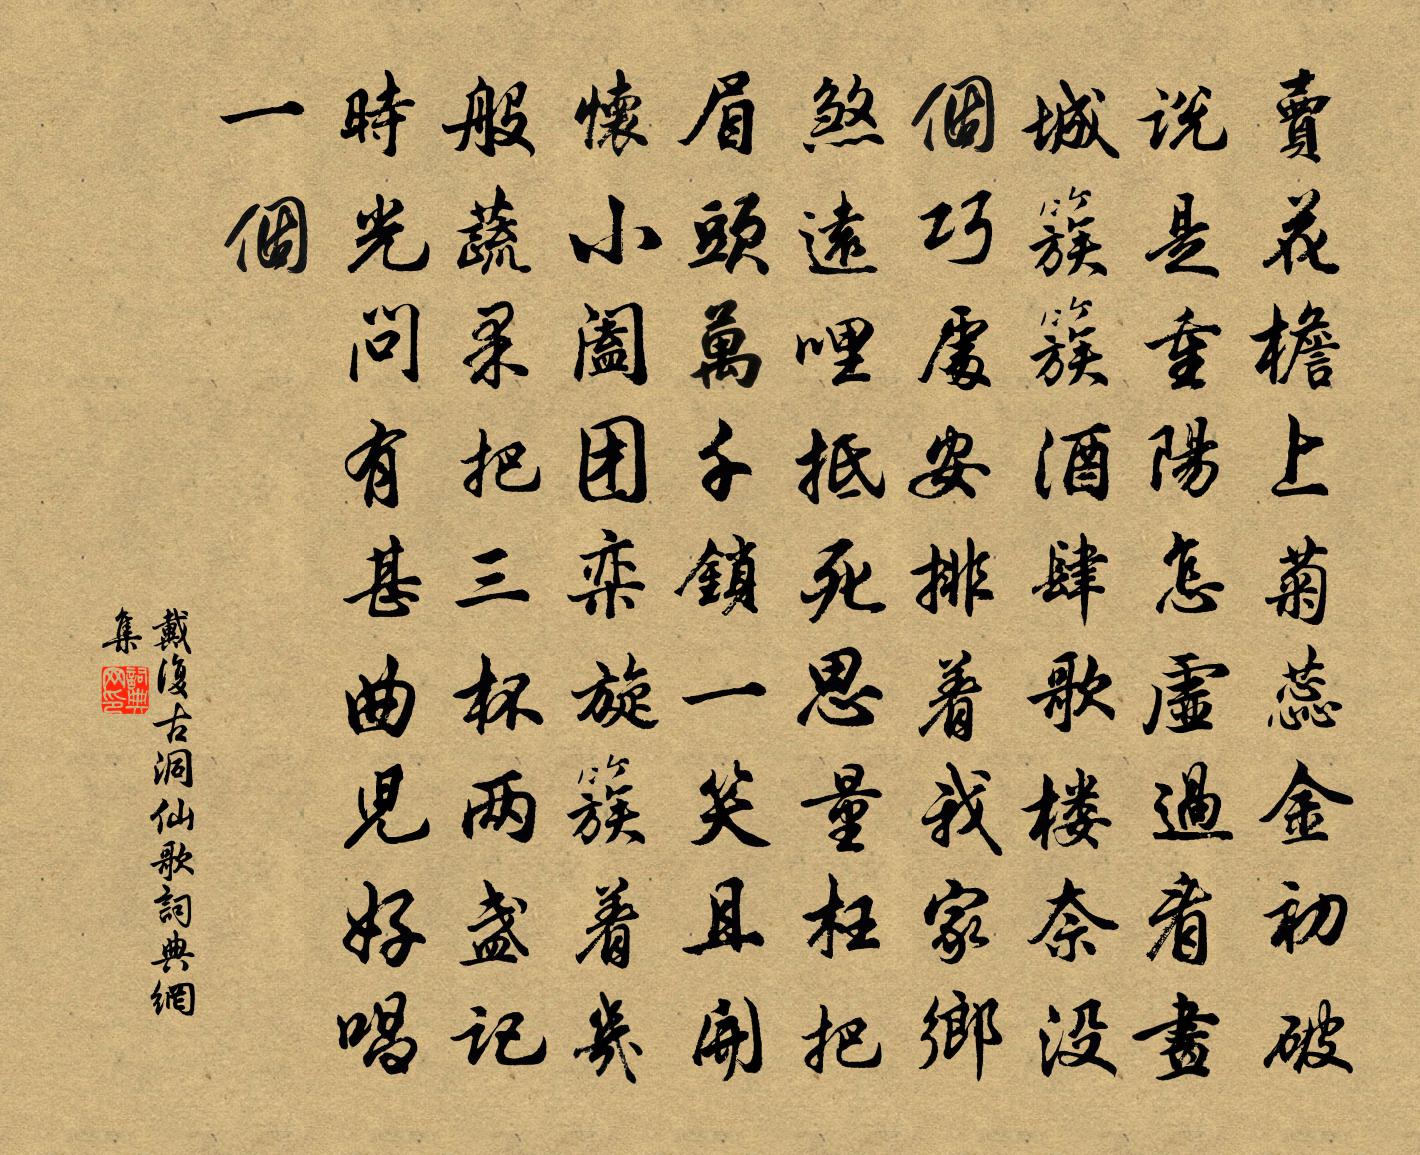 賣花檐上菊蕊金初破
说是重陽怎虛過看畫
城簇簇酒肆歌楼奈没
個巧處安排着我家鄉
煞遠哩抵死思量枉把
眉頭萬千鎖一笑且開
懷小阖团栾旋簇着幾
般蔬果把三杯两盞记
時光问有甚曲兒好唱
一個
戴復古洞仙歌詞典網
集
詞典网印